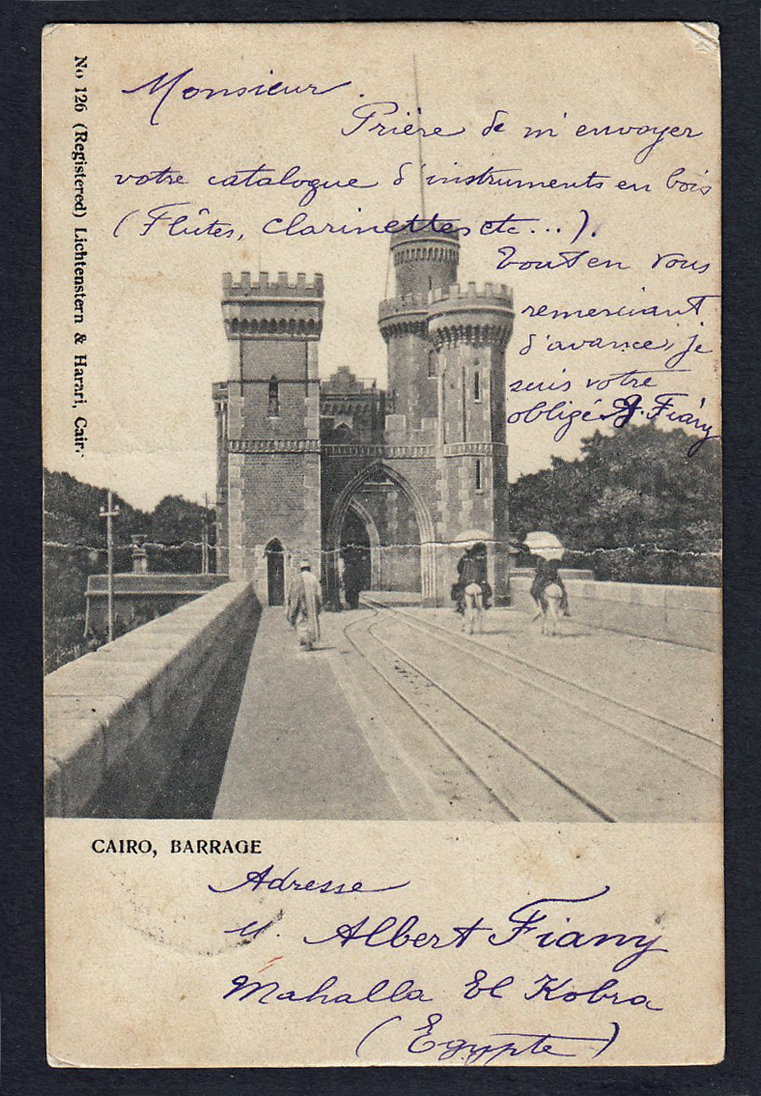 No 126 (Registered) Lichtenstern & Harari, Cair.
Monsieur.
Prière de m'envoyer
votre catalogue d'instruments en bois
(Flûtes, Clarinettes etc...).
Tout en vous
remerciant
d'avance, je
suis votre
obligé A. Fiany
CAIRO, BARRAGE
Adresse
M. Albert Fiany
Mahalla El Kobra
(Egypte)